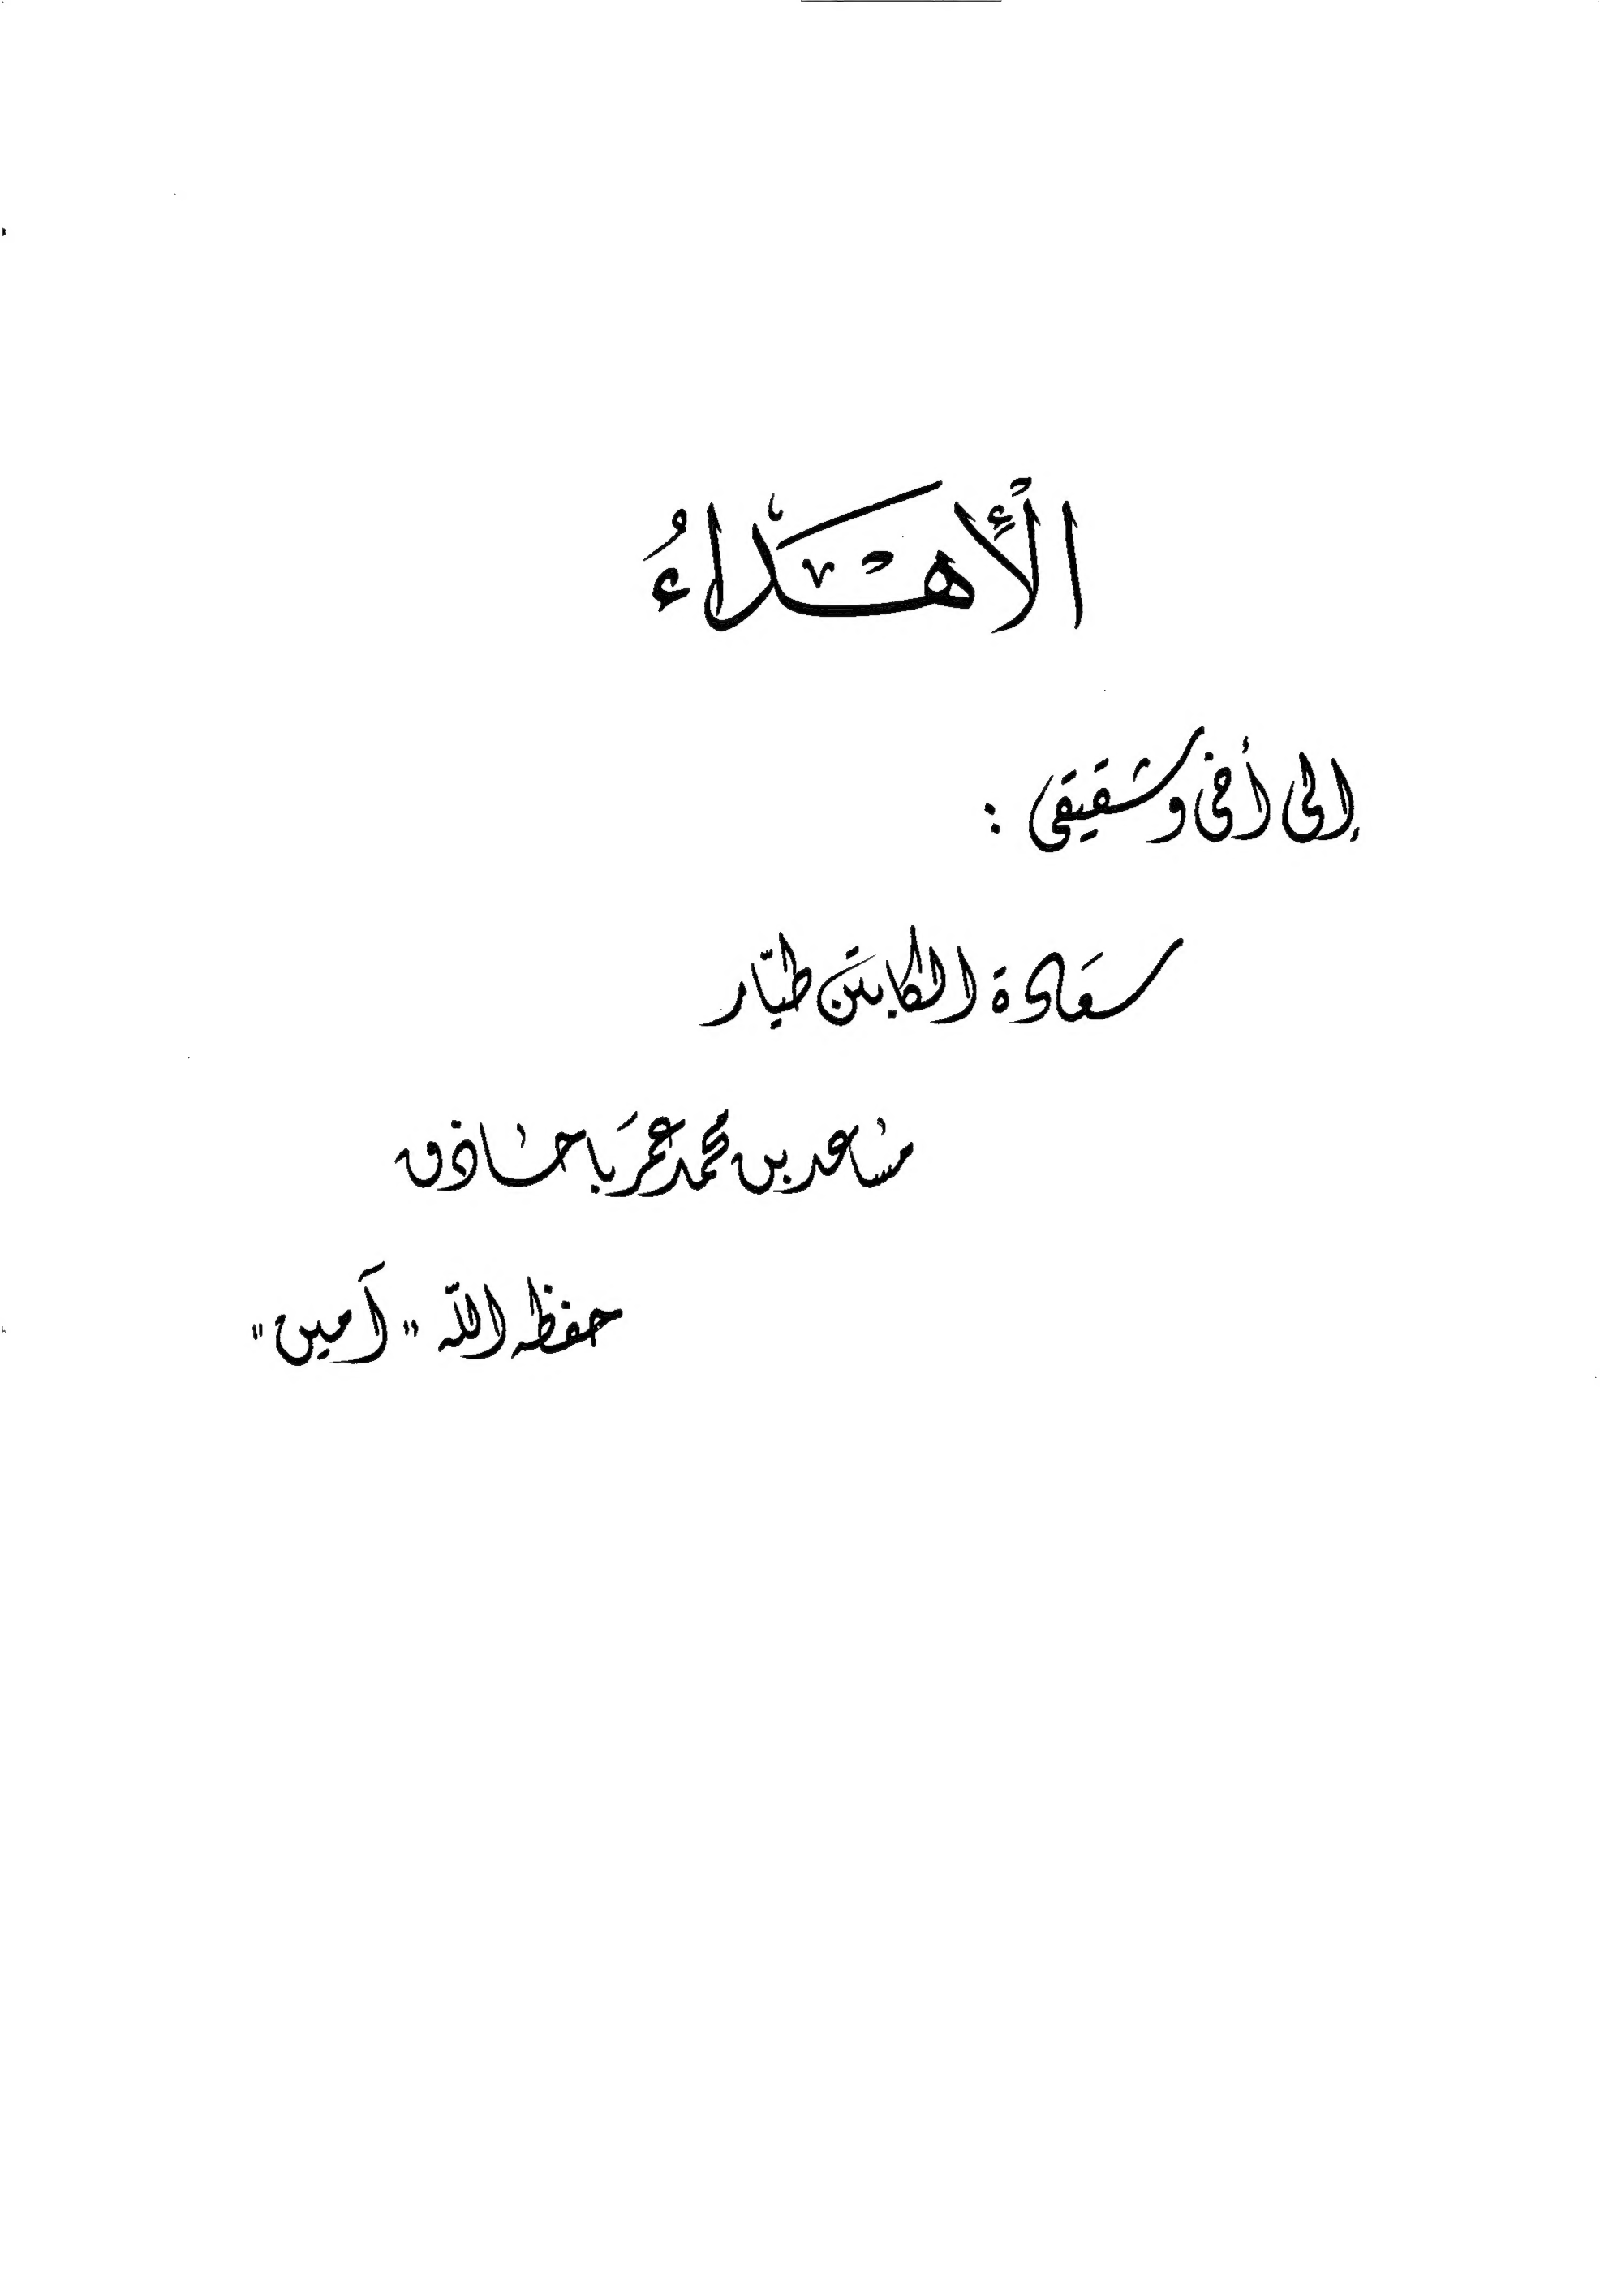 الأهداءُ
إلى أخى وشقيقى :
سعَادة الكابتن طيّار
مساعد بن محمد عمرَ باحاذق
حفظه اللّه " آمين "